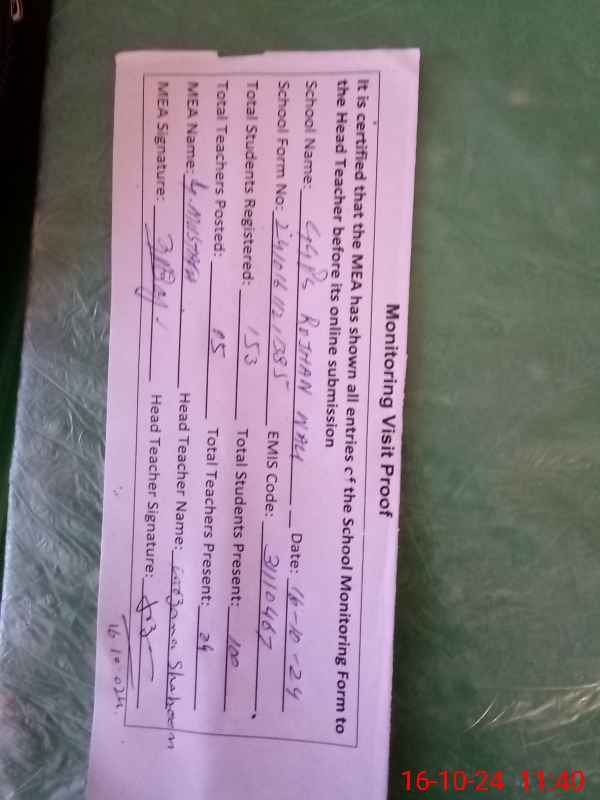 Monitoring Visit Proof
It is certified that the MEA has shown all entries of the School Monitoring Form to
the Head Teacher before its online submission
School Name: GGPS ROJHAN WALI Date: 16-10-24
School Form No: EMIS Code: 31110467
Total Students Registered: 153 Total Students Present: 100
Total Teachers Posted: 05 Total Teachers Present: 04
MEA Name: G. MUSTAFA Head Teacher Name: Shaheen
MEA Signature: Head Teacher Signature:
16.10.024.
16-10-24 11:40